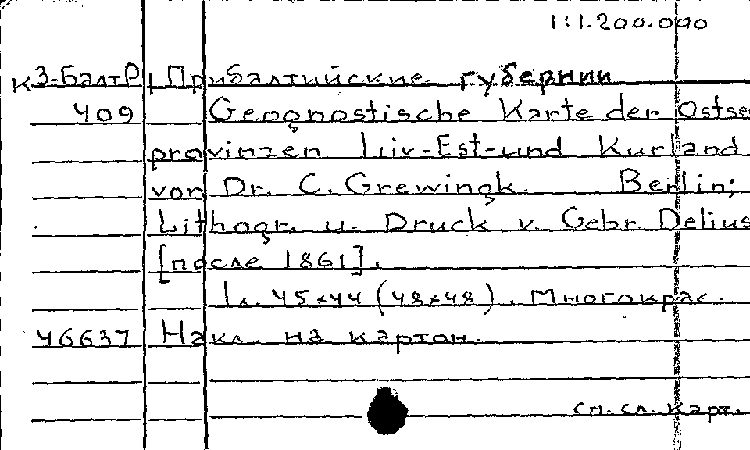 1:1.200.000
К3-БалтР Прибалтийские губернии
409 Geognostische Karte der Ostsee
provinzen Liv-Est-und Kurland
von Dr. C. Grewingk. Berlin;
Lithogr. u. Druck v. Gebr. Delius
[после 1861].
1л. 45×44 (48×48). Многокрас.
46637 Накл. на картон.
см. сл. карт.